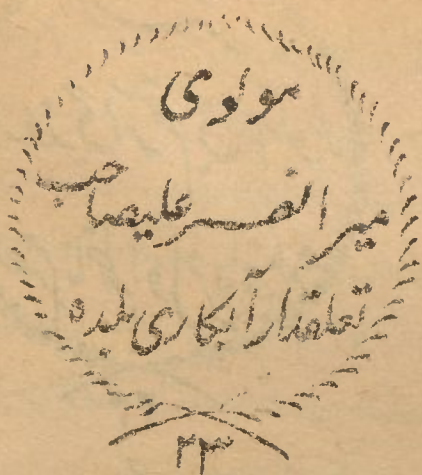 مولوی
میر انصر علیصاحب
تعلقدار آبکاری بلده
۲۳